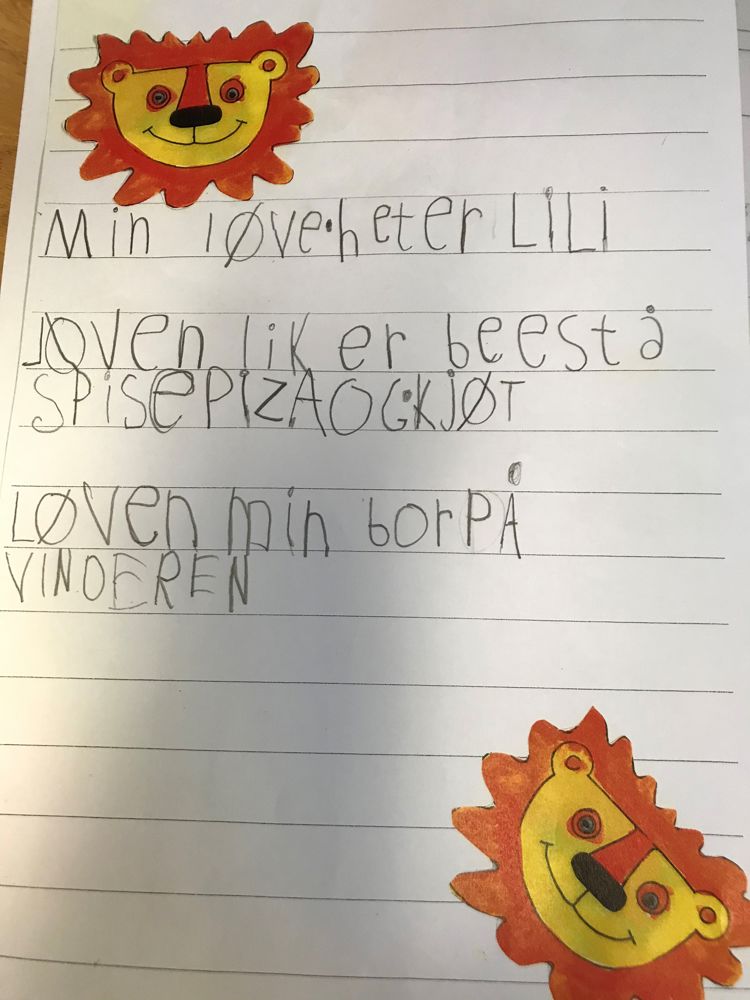 Min løve heter LiLi
Løven liker beest å
SPiSePizAOGKJØT
LØVen min borPÅ
VINDEREN